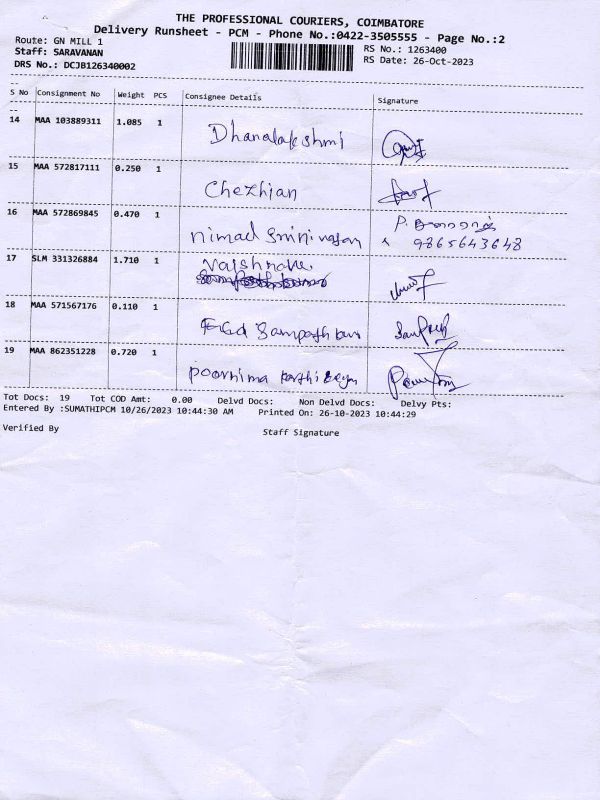 THE PROFESSIONAL COURIERS, COIMBATORE
Delivery Runsheet - PCM - Phone No.:0422-3505555 - Page No.:2
Route: GN MILL 1
RS No.: 1263400
Staff: SARAVANAN
RS Date: 26-Oct-2023
DRS No.: DCJB126340002
S No Consignment No Weight PCS Consignee Details Signature
14 MAA 103889311 1.085 1 Dhanalakshmi
15 MAA 572817111 0.250 1 Chezhian
16 MAA 572869845 0.470 1 nimad Srinivasan P.
9865643648
17 SLM 331326884 1.710 1 Vaishnave
18 MAA 571567176 0.110 1
19 MAA 862351228 0.720 1 poornima
Tot Docs: 19 Tot COD Amt: 0.00 Delvd Docs: Non Delvd Docs: Delvy Pts:
Entered By :SUMATHIPCM 10/26/2023 10:44:30 AM Printed On: 26-10-2023 10:44:29
Verified By Staff Signature